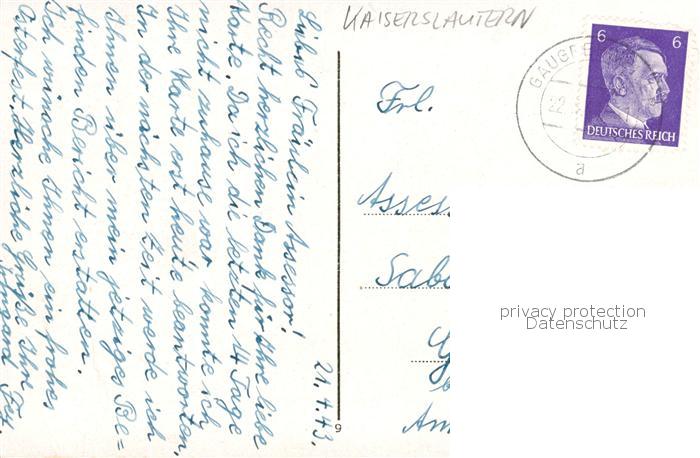 KAISERSLAUTERN
21.4.43.
Liebes Fräulein Assessor!
Recht herzlichen Dank für Ihre liebe
Karte. Da ich die letzten 14 Tage
nicht zuhause war konnte ich
Ihre Karte erst heute beantworten.
In der nächsten Zeit werde ich
Ihnen über mein jetziges Be=
finden Bericht erstatten.
Ich wünsche Ihnen ein frohes
Osterfest. Herzliche Grüße Ihre
Irmgard
9
6 6
DEUTSCHES REICH
22.
a
Frl.
Asses
Sab
Am
privacy protection
Datenschutz